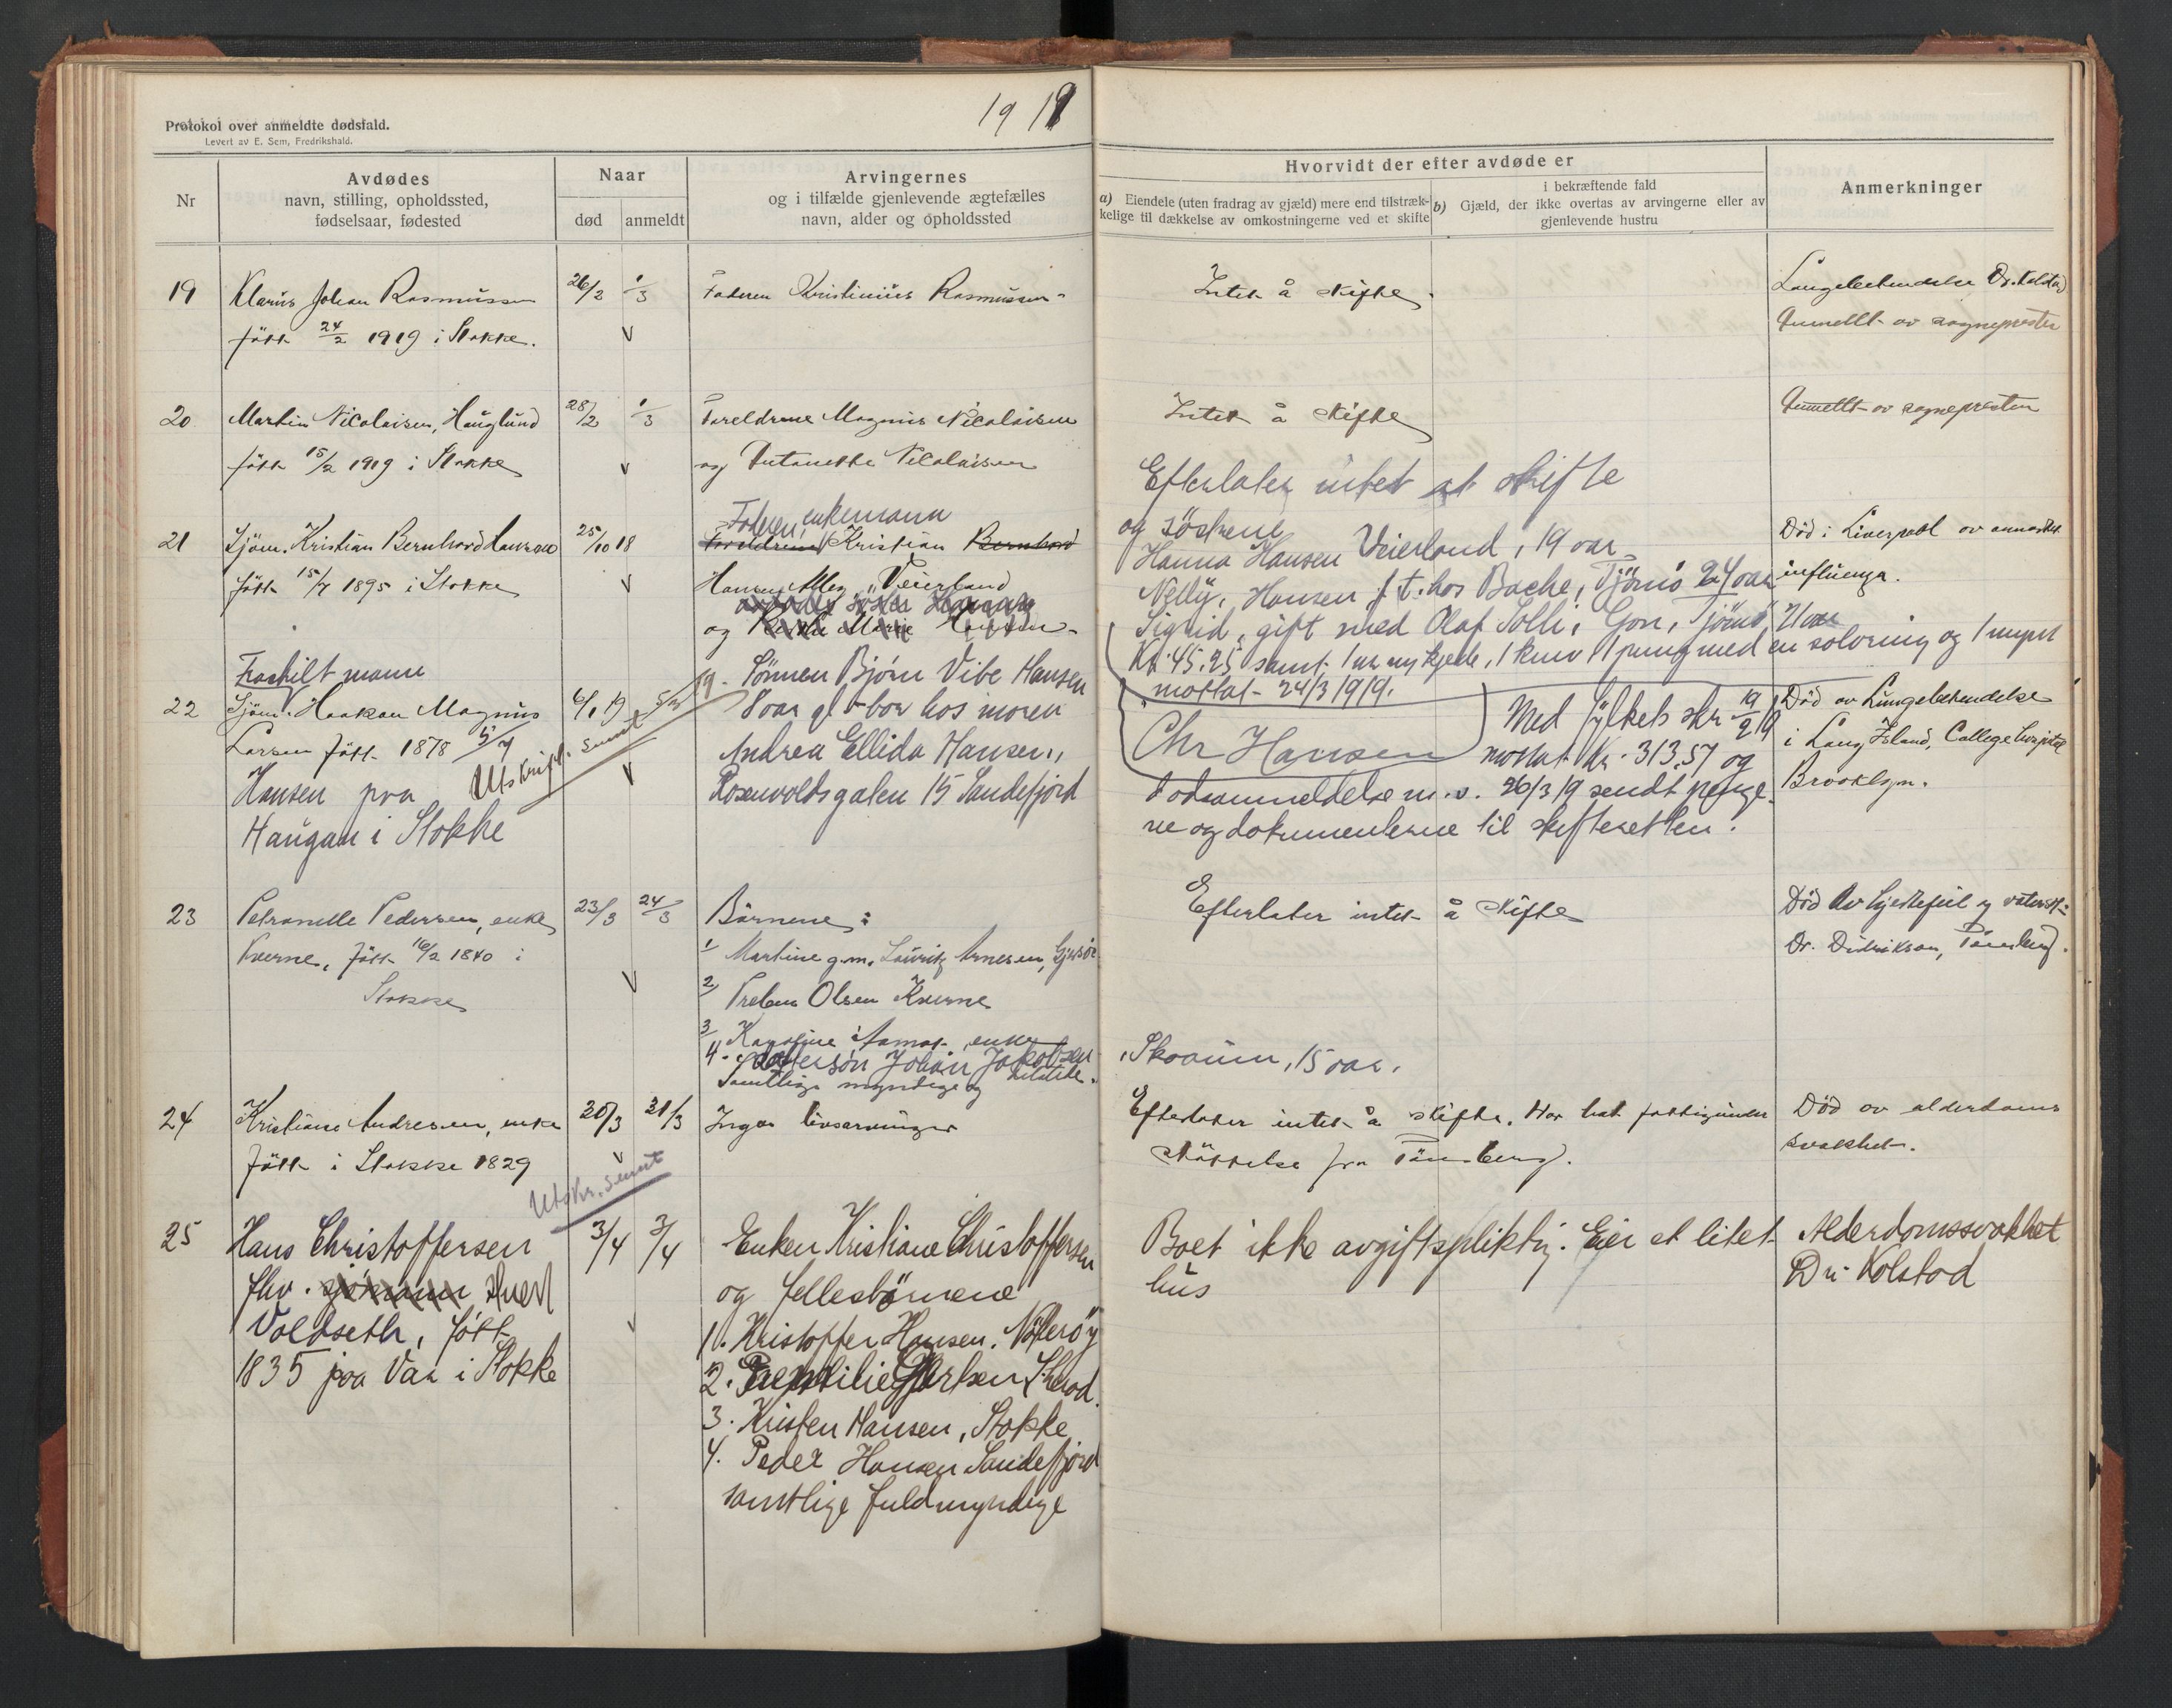 1919
Protokol over anmeldte dødsfald.
Levert av E. Sem, Fredrikshald.
Nr
Avdødes
navn, stilling, opholdssted,
fødselsaar, fødested
Naar
død
anmeldt
Arvingernes
og i tilfælde gjenlevende ægtefælles
navn, alder og opholdssted
Hvorvidt der efter avdøde er
a) Eiendele (uten fradrag av gjæld) mere end tilstræk-
kelige til dækkelse av omkostningerne ved et skifte
i bekræftende fald
b) Gjæld, der ikke overtas av arvingerne eller av
gjenlevende hustru
Anmerkninger
19
Klarius Johan Rasmussen
født 24/2 1919 i Stokke.
26/2
1/3
Faderen Kristinius Rasmussen
Intet å skifte
Lungebetendelse Dr. Kolstad
Anmeldt av sognepresten
20
Martin Nicolaisen, Hauglund
født 15/2 1919 i Stokke
28/2
1/3
Foreldrene Magnus Nicolaisen
og Antonette Nicolaisen
Intet å skifte
Anmeldt av sognepresten
21
Sjøm. Kristian Bernhard Hansen
født 15/7 1895 i Stokke
25/10 18
Faderen, enkemann
Foreldrene Kristian Bernhard
Hansen Veierland
og Marie Hansen
Efterlater intet at skifte
og søskene
Hanna Hansen Veierland, 19 aar
Nelly, Hansen f. t. hos Bache, Tjømø 24 aar
Sigrid, gift med Olaf Solli, Gon, Tjømø, 21 aar
Kr. 45.25 samt 1 ur m kjede, 1 kniv 1 pung med en solvring og 1 mynt
mottat 24/3 1919.
Chr Hansen
Død i Liverpool av
influenza.
22
Fraskilt mann
Sjøm. Haakon Magnus
Larsen født 1878 5/7
Hansen paa
Haugan i Stokke
6/1 19
Utskrift sendt
Sønnen Bjørn Vibe Hansen
8 aar gl bor hos moren
Andrea Ellida Hansen,
Rosenvoldsgaten 15 Sandefjord
Med fylkets skr 19/2 19
mottat kr. 313,57 og
dødsanmeldelse m.v. 26/3 19 sendt penge-
ne og dokumenterne til skifteretten.
Død av Lungebetendelse
i Long Island, College hospital
Brooklyn.
23
Petronelle Pedersen, enke
Kverne, født 16/2 1840 i
Stokke
23/3
24/3
Børnene:
1 Martine g.m. Lauritz Arnesen,
2 Preben Olsen Kverne
3 Karoline Aamot, enke
4. Dattersøn Johan Jakobsen
Samtlige myndige og
Skoaum, 15 aar.
Efterlater intet å skifte
Død av hjertefeil og vatersot
Dr. Didrikson, Tønsberg.
24
Kristiane Andresen, enke
født i Stokke 1829
20/3
21/3
Ingen livsarvinger
Efterlater intet å skifte. Har hat fattigunder
støttelse fra Tønsberg.
Død av alderdoms
svakhet.
25
Utskr. sendt
Hans Christoffersen
fhv. sjømann
Voldseth, født
1835 paa Vaa i Stokke
3/4
3/4
Enken Kristiane Christoffersen
og fellesbørnene
1. Kristoffer Hansen, Nøtterøy
2.
3. Kristen Hansen, Stokke
4. Peder Hansen Sandefjord
samtlige fuldmyndige
Boet ikke avgiftspliktig. Eier et litet
hus
Alderdomssvakhet
Dr. Kolstad